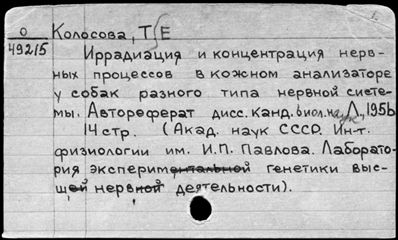 О
49215
Колосова, Т Е
Иррадиация и концентрация нерв-
ных процессов в кожном анализаторе
у собак разного типа нервной систе-
мы. Автореферат дисс. канд. биол. наук Л, 1956
14 стр. (Акад. наук СССР. Ин-т.
физиологии им. И.П. Павлова. Лаборато-
рия экспериментальной генетики выс-
щей нервной деятельности).